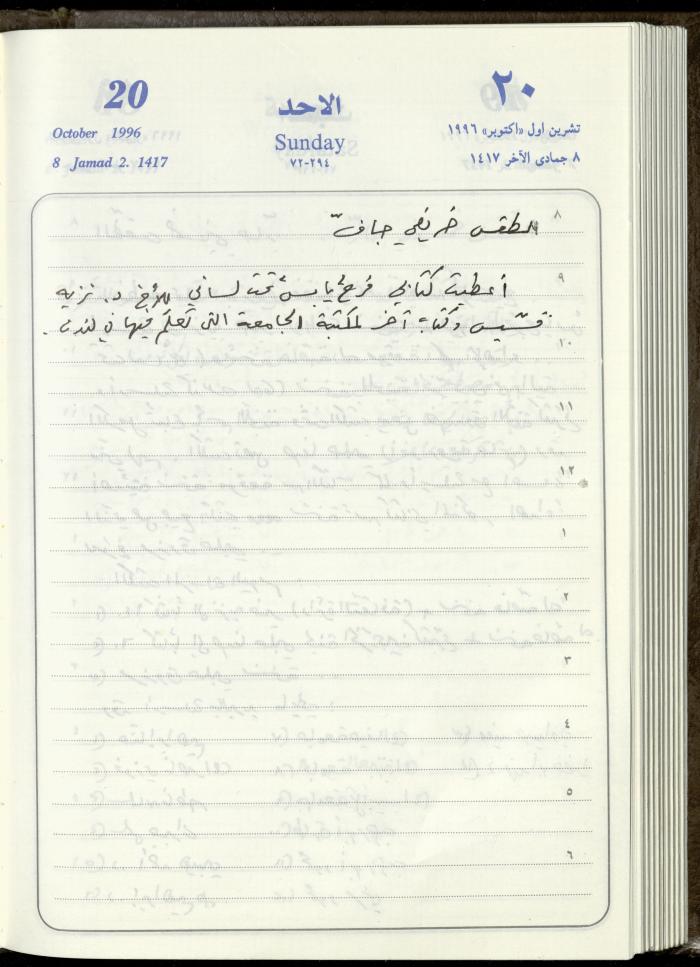 20
الاحد
٢٠
October 1996
Sunday
تشرين اول «اكتوبر» ١٩٩٦
8 Jamad 2. 1417
٧٢-٢٩٤
٨ جمادى الآخر ١٤١٧
٨
الطقس خريفي جافّ
٩
أعطيت كتابي فرحٌ يابس تحت لساني للأخ د. نزيه
قسّيس وكتاب آخر لمكتبة الجامعة التي تعلّم فيها في لندن.
١٠
١١
١٢
١
٢
٣
٤
٥
٦